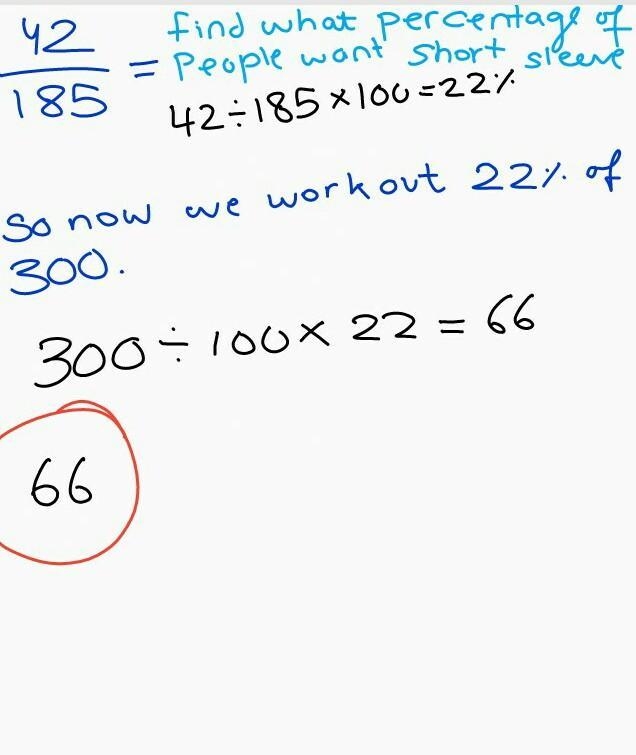 42/185 = find what percentage of
People want short sleeve
42÷185×100=22%
So now we workout 22% of
300.
300÷100×22=66
66